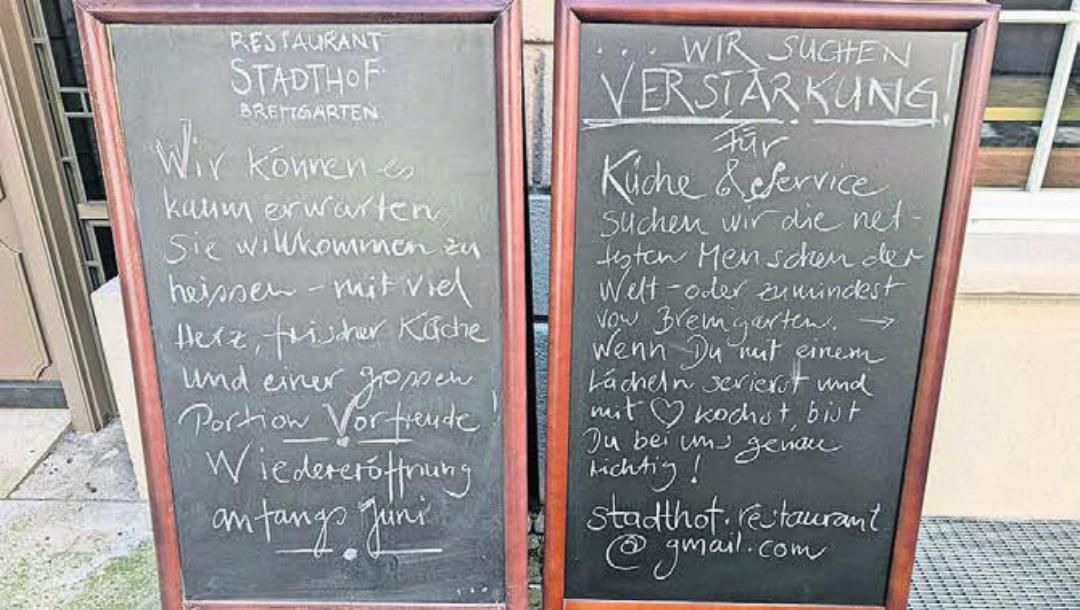 RESTAURANT
STADTHOF
BREMGARTEN
Wir können es
kaum erwarten,
Sie willkommen zu
heissen - mit viel
Herz, frischer Küche
und einer grossen
Portion Vorfreude!
Wiedereröffnung
anfangs Juni
... WIR SUCHEN
VERSTÄRKUNG!
Für
Küche & Service
suchen wir die net-
testen Menschen der
Welt - oder zumindest
von Bremgarten. →
Wenn Du mit einem
Lächeln servierst und
mit ♡ kochst, bist
Du bei uns genau
richtig!
stadthof.restaurant
@gmail.com